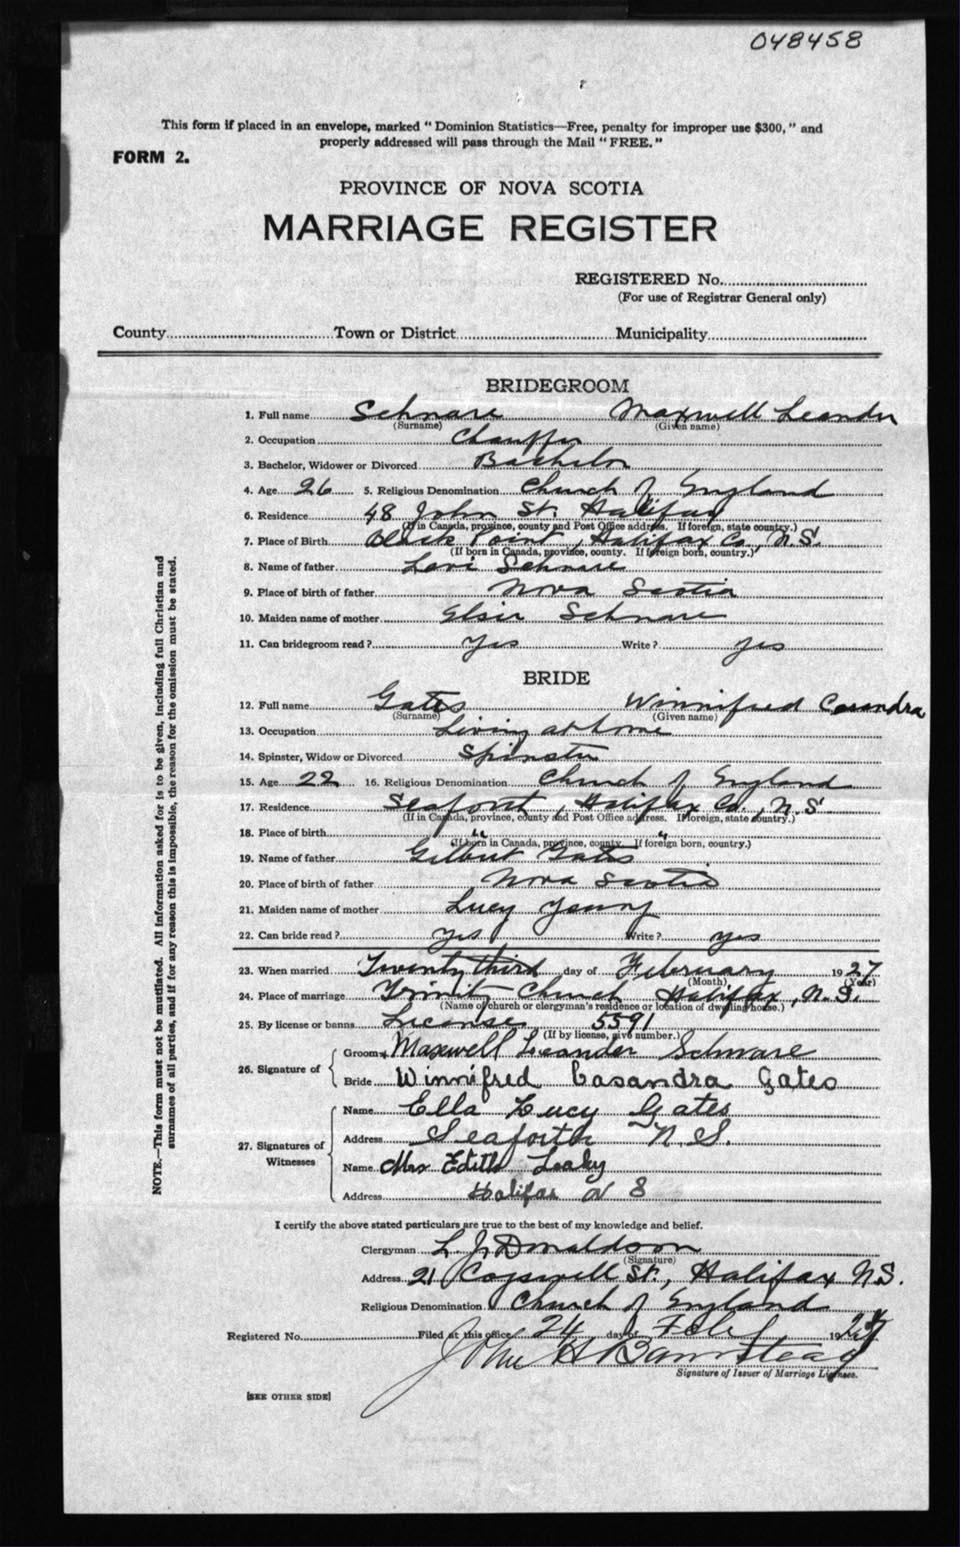 048458
This form if placed in an envelope, marked "Dominion Statistics—Free, penalty for improper use $300," and
properly addressed will pass through the Mail "FREE."
FORM 2.
PROVINCE OF NOVA SCOTIA
MARRIAGE REGISTER
REGISTERED No.
(For use of Registrar General only)
County Town or District Municipality
BRIDEGROOM
1. Full name Schnare Maxwell Leander
(Surname) (Given name)
2. Occupation Chauffer
3. Bachelor, Widower or Divorced Bachelor
4. Age 26 5. Religious Denomination Church of England
6. Residence 48 John St. Halifax
(If in Canada, province, county and Post Office address. If foreign, state country.)
7. Place of Birth Black Point, Halifax Co., N.S.
(If born in Canada, province, county. If foreign born, country.)
8. Name of father Levi Schnare
9. Place of birth of father Nova Scotia
10. Maiden name of mother Elsie Schnare
11. Can bridegroom read? Yes Write? yes
BRIDE
12. Full name Gates Winnifred Casandra
(Surname) (Given name)
13. Occupation Living at home
14. Spinster, Widow or Divorced Spinster
15. Age 22 16. Religious Denomination Church of England
17. Residence Seaforth, Halifax Co., N.S
(If in Canada, province, county and Post Office address. If foreign, state country.)
18. Place of birth " "
(If born in Canada, province, county. If foreign born, country.)
19. Name of father Gilbert Gates
20. Place of birth of father Nova Scotia
21. Maiden name of mother Lucy Young
22. Can bride read? yes Write? yes
23. When married Twenty third day of February 1927
(Month) (Year)
24. Place of marriage Trinity Church Halifax, N.S.
(Name of church or clergyman's residence or location of dwelling house.)
25. By license or banns License 5591
(If by license, give number.)
26. Signature of
Groom Maxwell Leander Schnare
Bride Winnifred Casandra Gates
27. Signatures of Witnesses
Name Ella Lucy Gates
Address Seaforth N.S.
Name Mrs Edith Leahy
Address Halifax N S
I certify the above stated particulars are true to the best of my knowledge and belief.
Clergyman L. J. Donaldson
(Signature)
Address 21 Cogswell St., Halifax N.S.
Religious Denomination Church of England
Registered No. Filed at this office 24 day of Feb 1927
John H Barnstead
Signature of Issuer of Marriage Licenses.
[SEE OTHER SIDE]
NOTE.—This form must not be mutilated. All information asked for is to be given, including full Christian and
surnames of all parties, and if for any reason this is impossible, the reason for the omission must be stated.